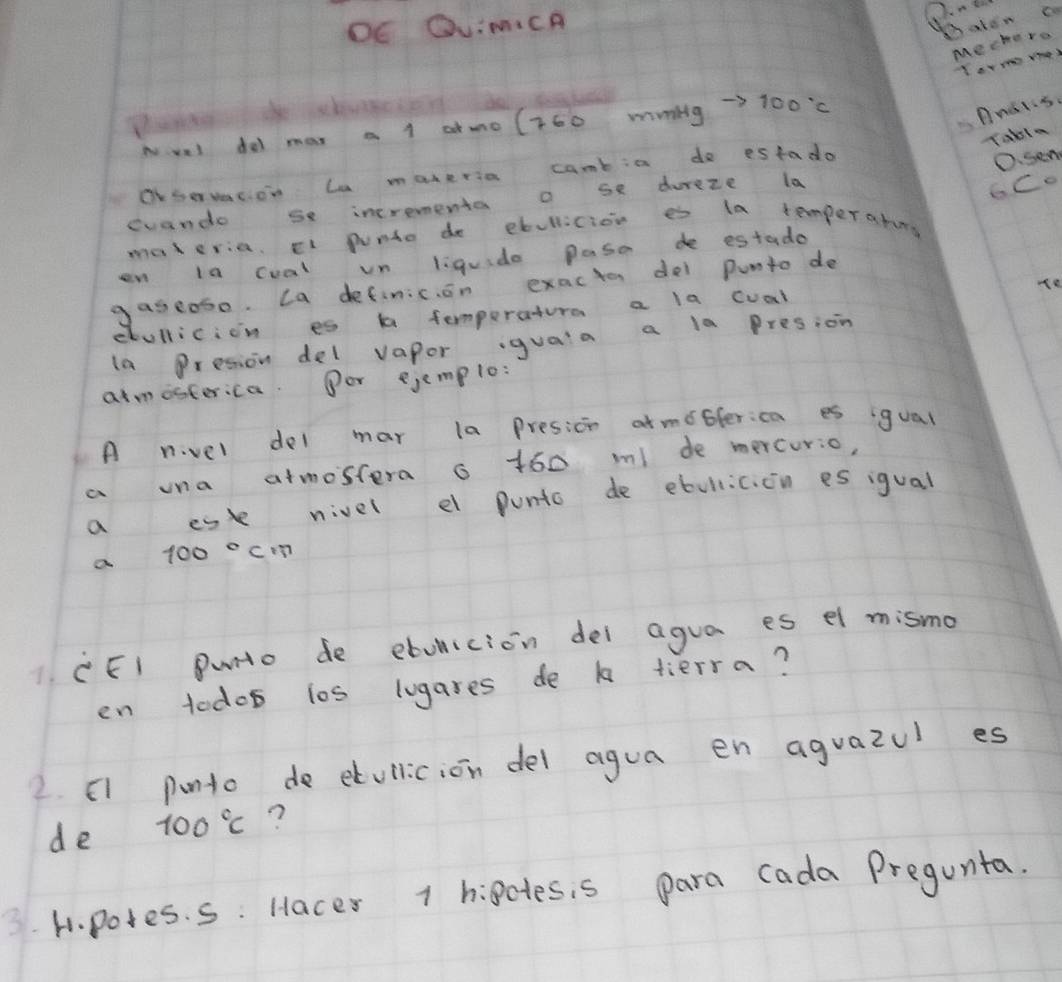 DE QUiMiCA
Punto de ebullición de agua
Nivel del mar a 1 atmo (760 mmHg → 100°c
Observación: La materia cambia de estado
cuando se incrementa o se dureze la
materia. El punto de ebullición es la temperatura
en la cual un liquido pasa de estado
gaseoso. La definición exacta del punto de
ebullición es la temperatura a la cual
la Presión del vapor iguala a la Presión
atmosferica. Por ejemplo:
A nivel del mar la Presión atmósferica es igual
a una atmosfera o 760 ml de mercurio,
a este nivel el punto de ebullición es igual
a 100 ° cm
1. ¿El Punto de ebullición del agua es el mismo
en todos los lugares de la tierra?
2. El punto de ebullición del agua en aguazul es
de 100°c?
3. Hipotesis: Hacer 1 hipotesis para cada Pregunta.
Balon co
Mechero
Termome
Analis
Tabla
D.sen
6 Co
Te